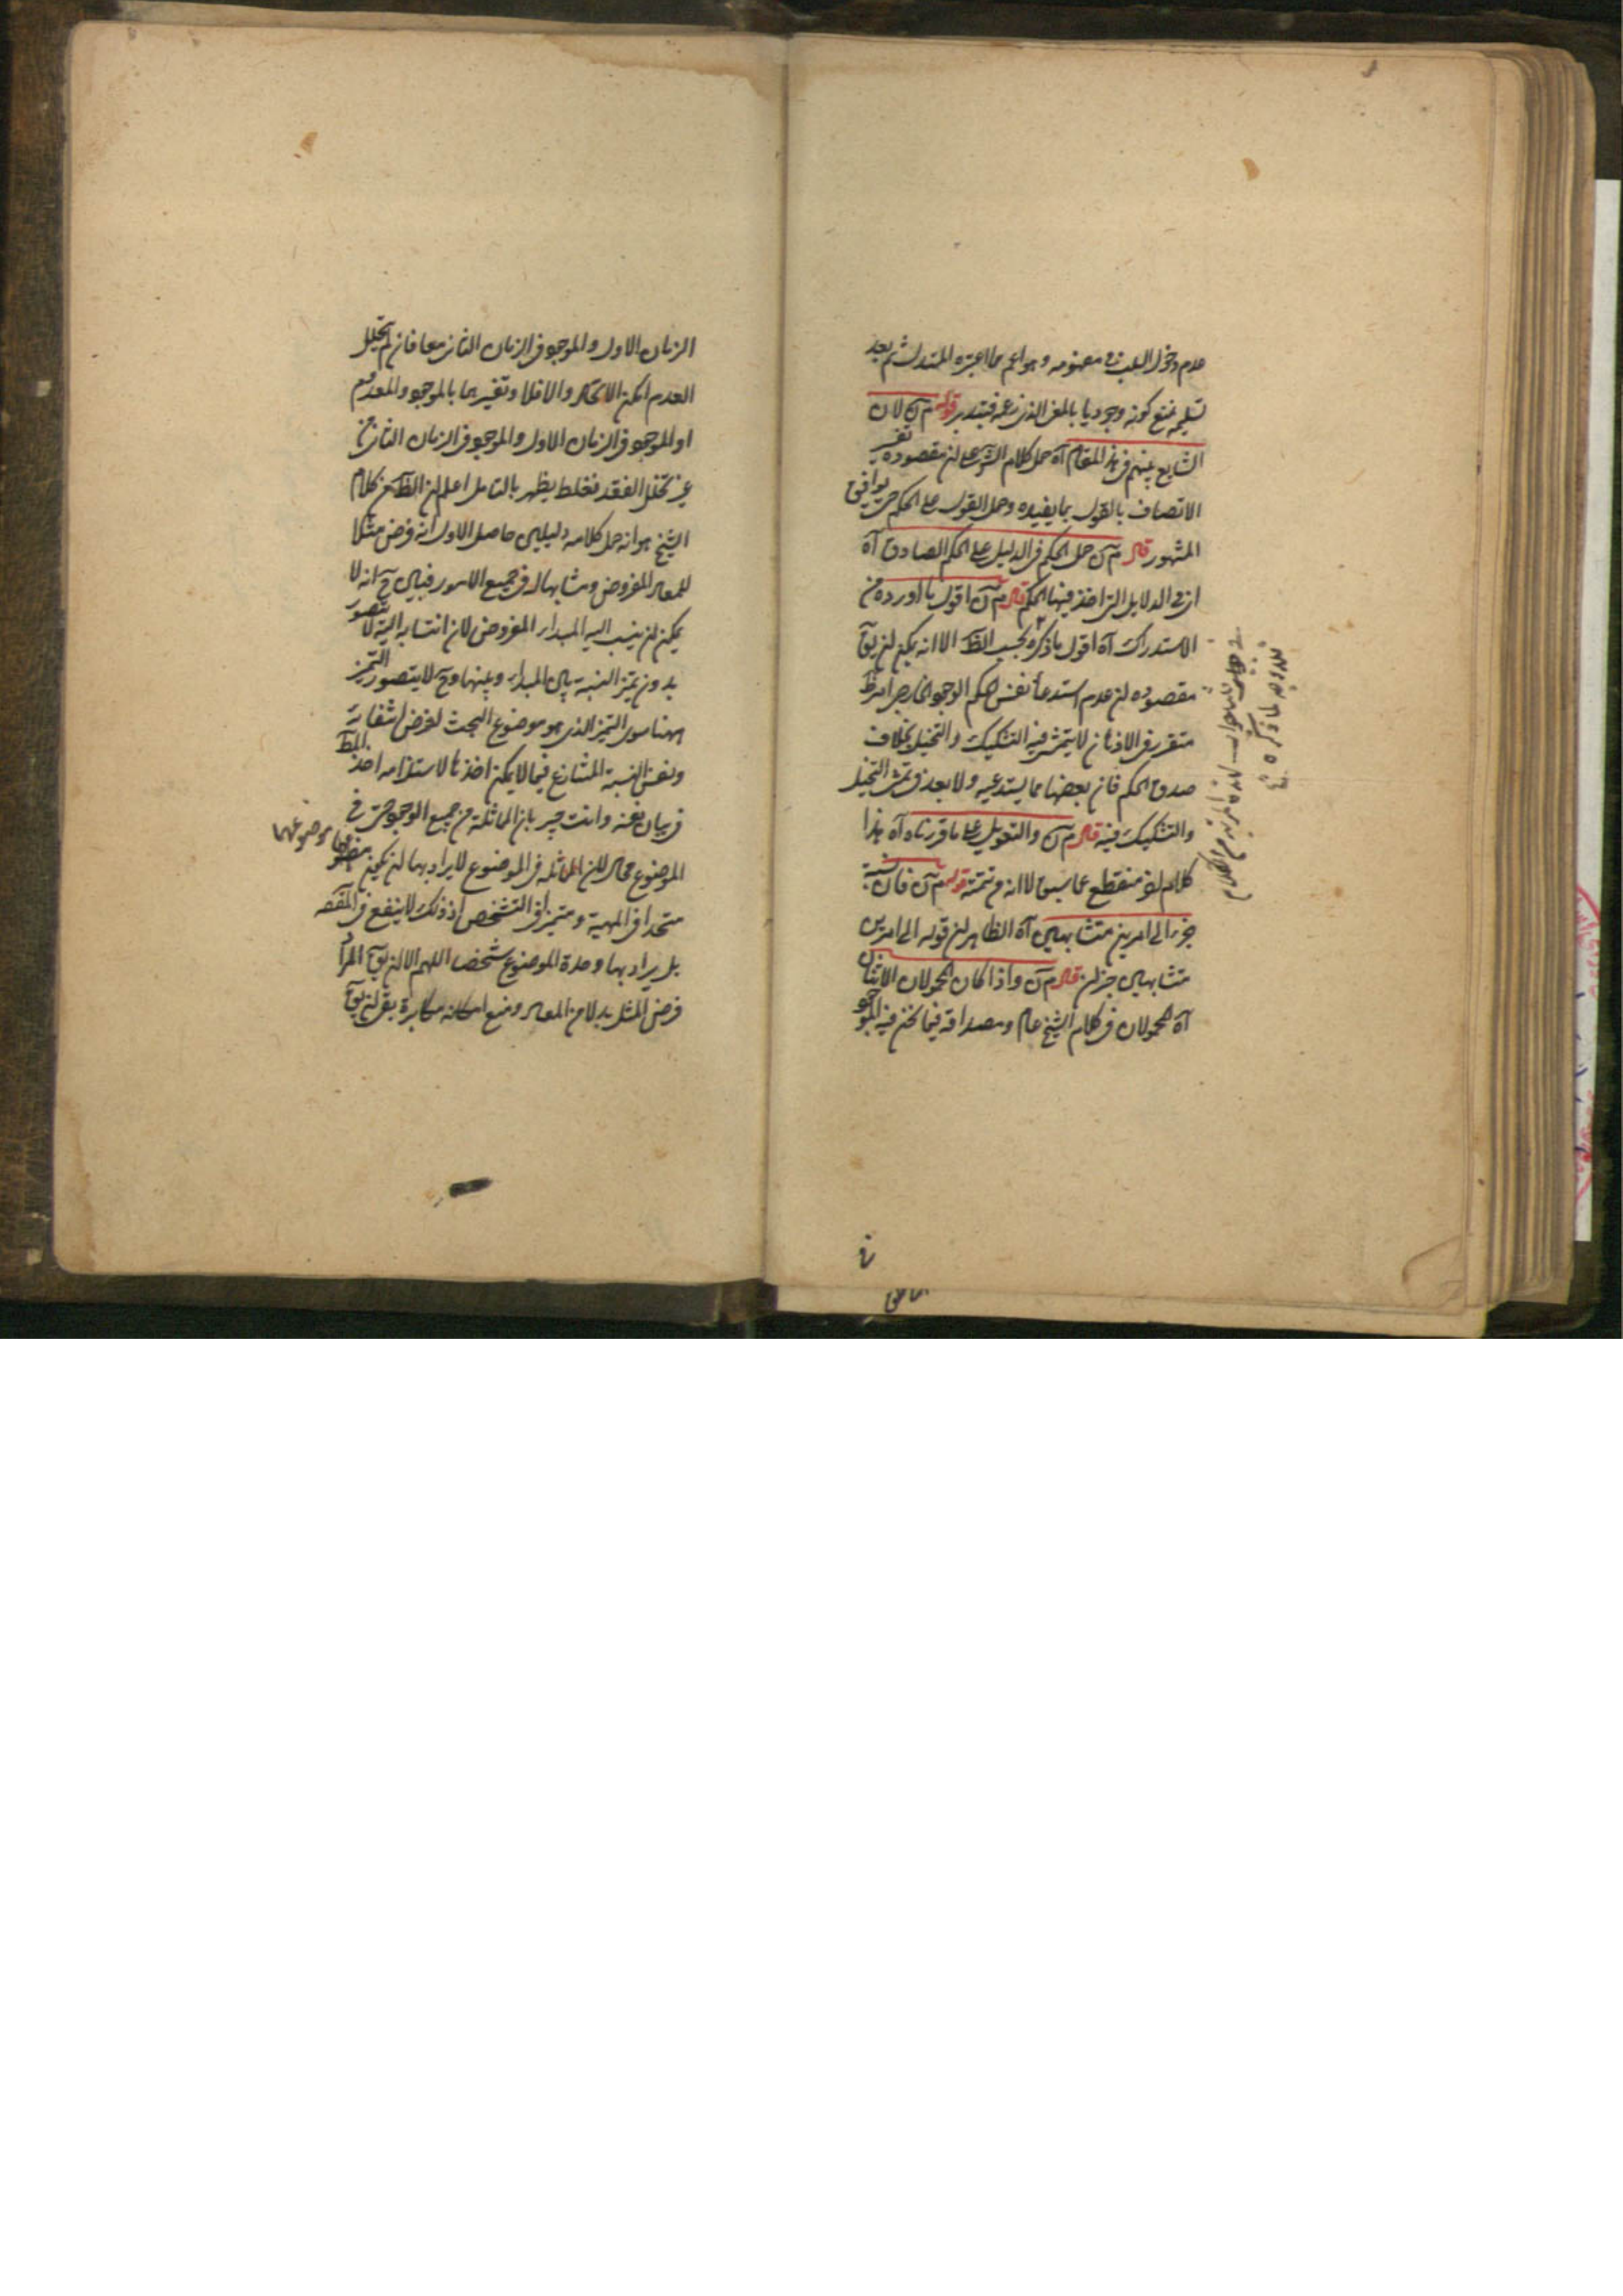 عدم دخول السلب في مفهومه وهو اعم مما اعتبره المستدل ثم بعد
تسليمه نمنع كونه وجوديا بالمعنى الذي زعمه فتدبر قوله م ن لان
الشايع بينهم في هذا المقام آه حمل كلام الش على ان مقصوده تفسير
الاتصاف بالقول بما يفيده وحمل القول على الحكم حتى يوافق
المشهور قال م ن حمل الحكم في الدليل على الحكم الصادق آه
الدلايل التي اخذ فيها الحكم قال م ن اقول ما اورده من
الاستدراك آه اقول ما ذكره بحسب الظ الا انه يمكن ان يق
مقصوده ان عدم استدعاء نفس الحكم الوجود الخارجي امر ظ
متقرر في الاذهان لا يتمشى فيه التشكيك والتخييل بخلاف
صدق الحكم فان بعضها مما يستدعيه ولا بعد في تمشي التخييل
والتشكيك فيه قال م ن والتعويل على ما قررناه آه هذا
كلام منقطع عما سبق لا انه من تتمته قوله م ن فان نسبة
الى امرين متشابهين آه الظاهر ان قوله الى امرين
متشابهين قال م ن واذا كان المحمولان الاثنان
آه المحمولان في كلام الشيخ عام ومصداقه فيما نحن فيه الموجود
الزمان الاول والموجود في الزمان الثاني معا فان لم يتخلل
العدم امكن الاتحاد والا فلا وتفسيرهما بالموجود والمعدوم
او الموجود في الزمان الاول والموجود في الزمان الثاني من
غير تخلل الفقد فغلط يظهر بالتامل اعلم ان الظ من كلام
الشيخ هو انه حمل كلامه دليلين حاصل الاول انه فرض مثلا
للمعاد المفروض ومشابها له في جميع الامور فبين ح انه لا
يمكن ان ينسب اليه المبدأ المفروض لان انتسابه اليه لا يتصور
بدون تميز النسبة بين المبدأ وبينهما وح لا يتصور التميز
ههنا سوى التميز الذي هو موضوع البحث لفرض انتفائه
ونفس النسبة المتنازع فيما لا يمكن اخذها لاستلزامه اخذ المط
في بيان نفسه وانت خبير بان المماثلة من جميع الوجوه حتى في
الموضوع محال لان المماثلة في الموضوع لا يراد بها ان يكون موضوعهما
متحدا في المهية ومتميزا في التشخص اذ ذلك لا ينفع في المقصد
بل يراد بها وحدة الموضوع شخصا اللهم الا ان يق المراد
فرض المثل بدلا من المعاد ومنع امكانه مكابرة بقي ان يق